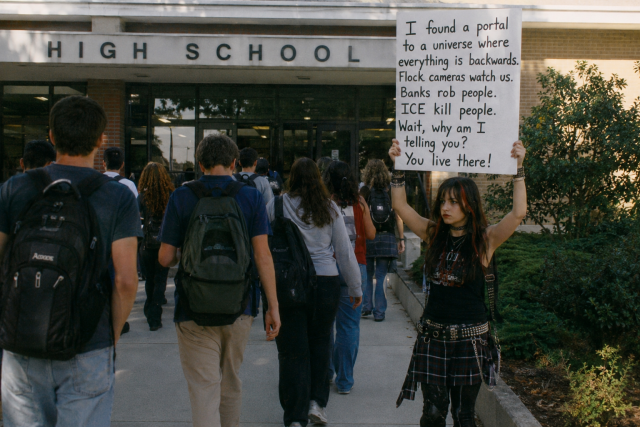 HIGH SCHOOL
I found a portal
to a universe where
everything is backwards.
Flock cameras watch us.
Banks rob people.
ICE kill people.
Wait, why am I
telling you?
You live there!